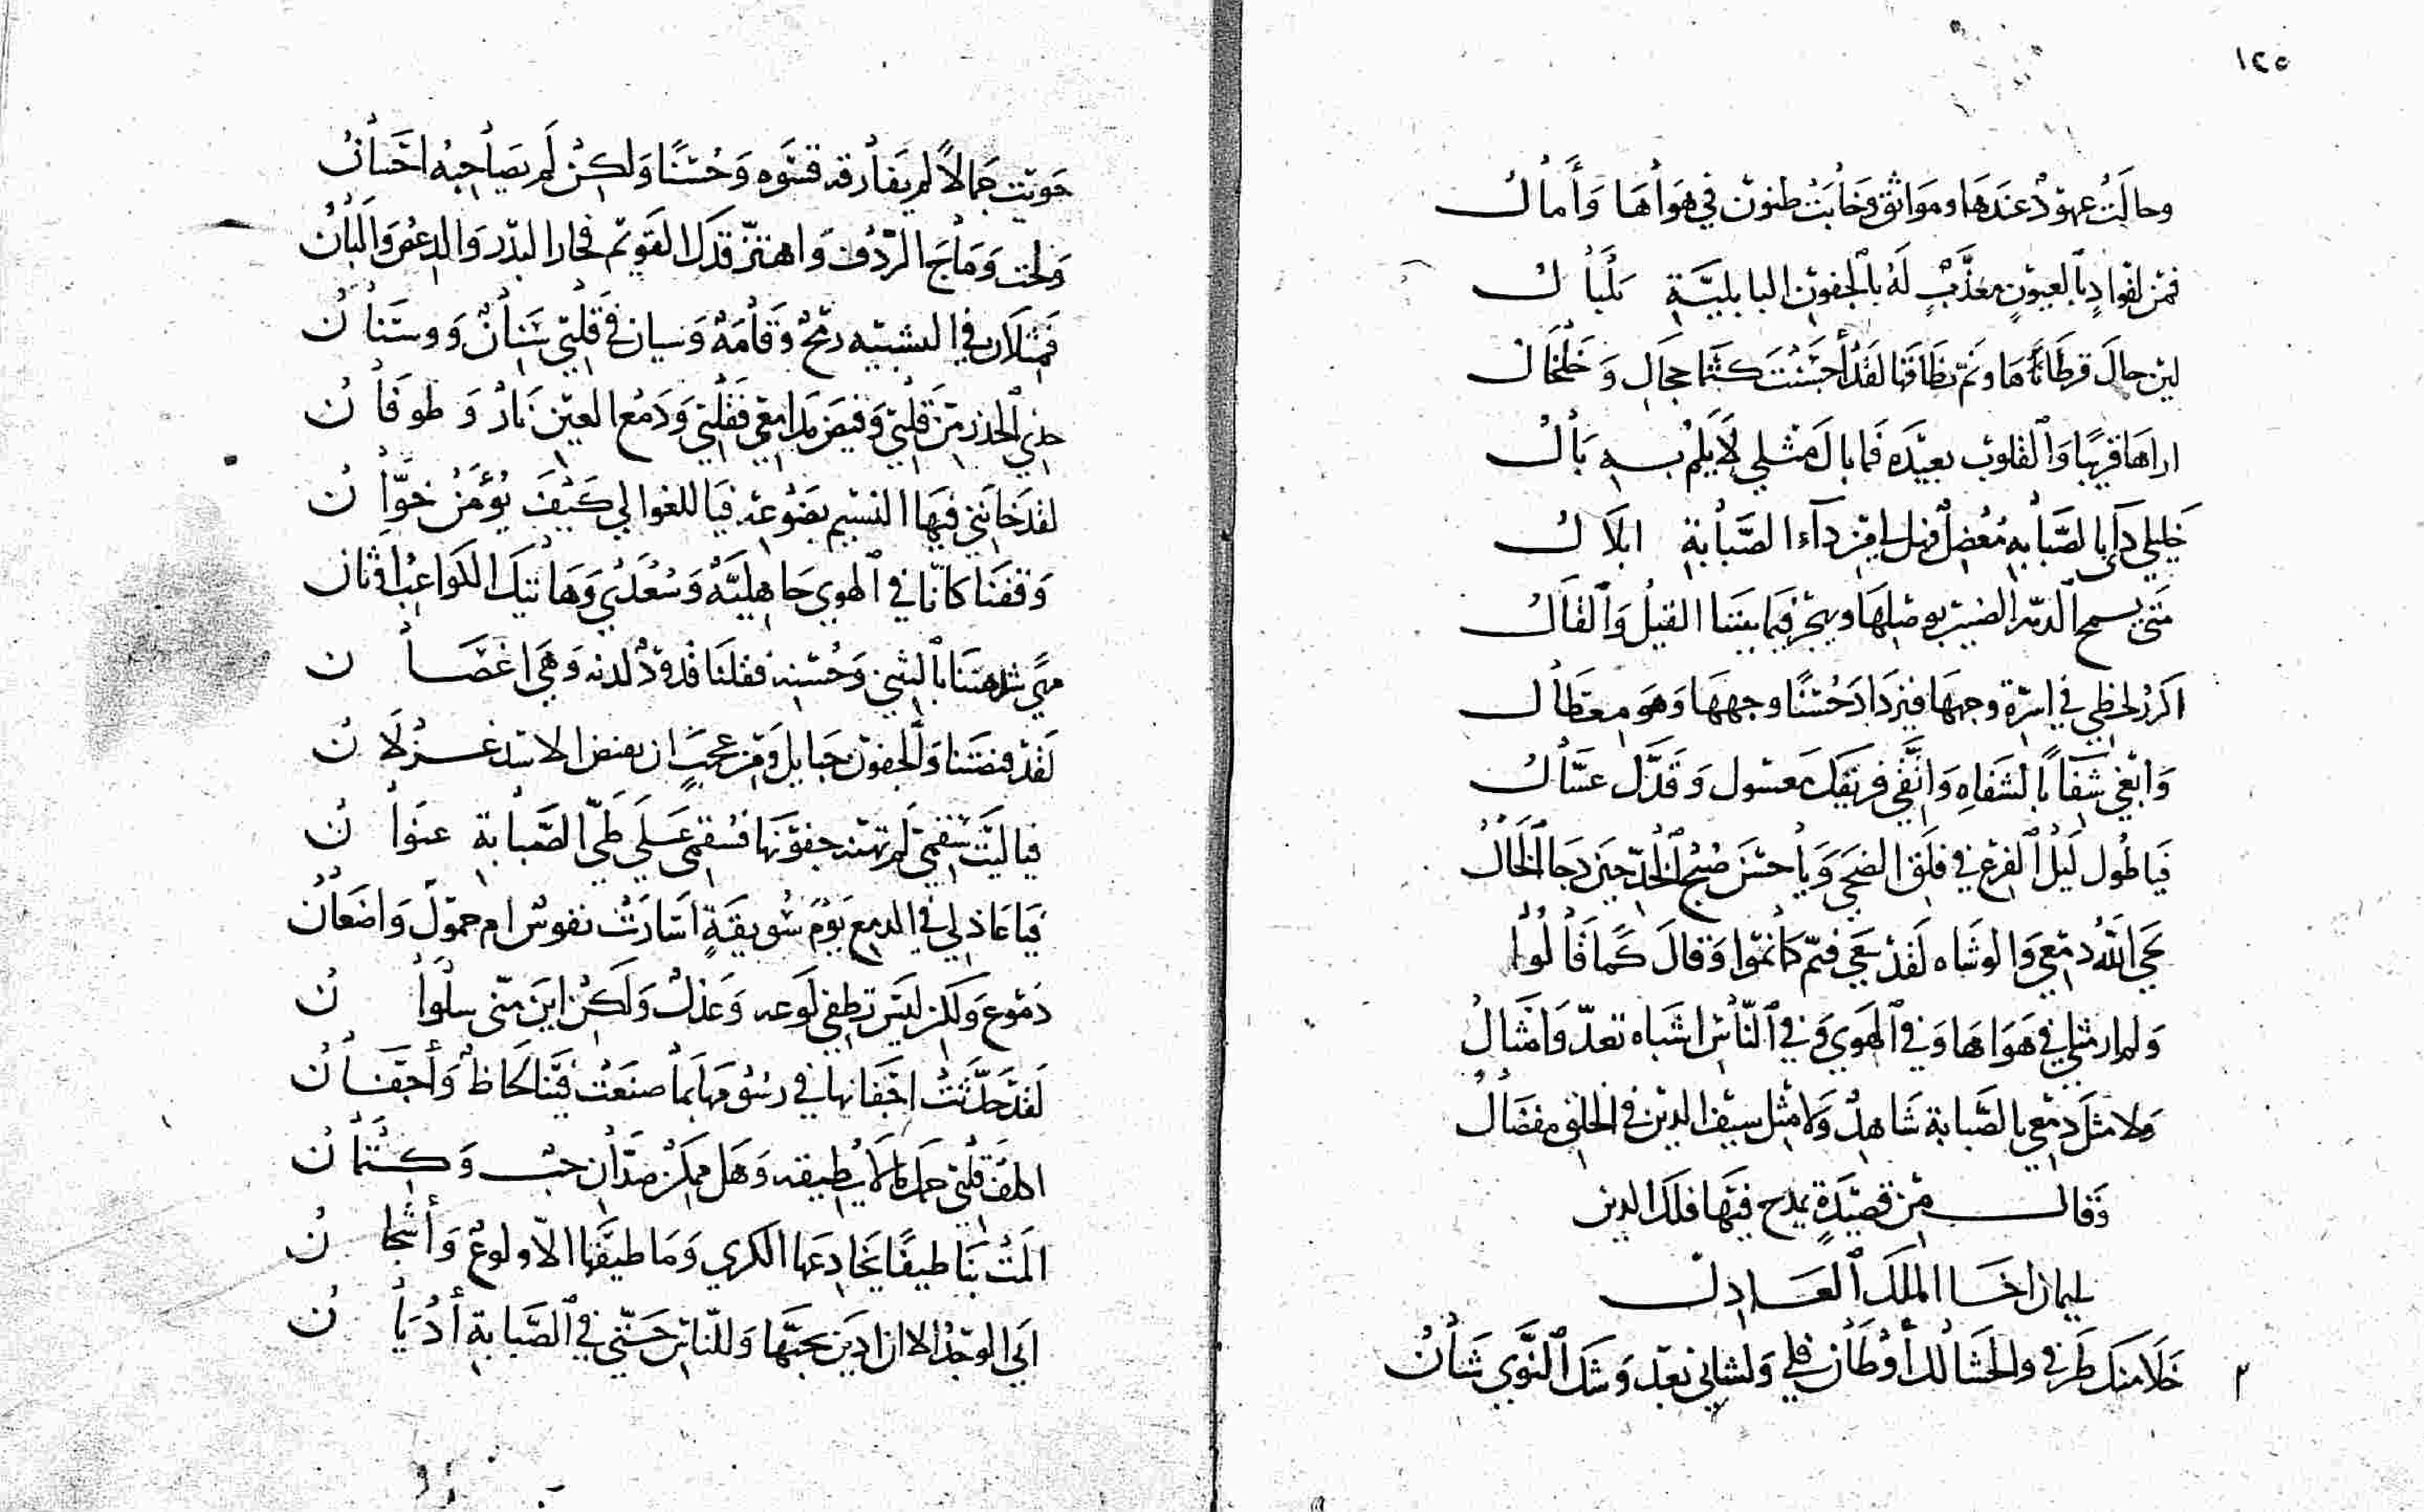 ١٢٥
وحالَتْ عهودٌ عندَها ومواثق وَخابَتْ ظنون في هَواها وَأَمالُ
فمن لفوادٍ بالعيون معذَّبٍ لَهُ بالجفون البابليَّة بَلْبالُ
لين حالَ قرطاها ونمّ نطاقها لقد أحسنت كتما حجال وَخَلخالُ
اراها قريبًا وَالقلوب بعيدَه فما بال مثلي لا يلم به بالُ
خليلي دآي بالصَّبابه مُعضِل فهل لي من دآء الصَّبابة ابلَالُ
متى يسمح الدهر الضنين بوصلها ويهجر فيما بيننا القيلُ وَالقالُ
اكرر لحظي في اسرّة وجهها فيزداد حُسنًا وجهها وَهو معطالُ
وَابغي شفآ بالشفاهِ وَانثني فريقك معسول وَقدّك عسّالُ
فيا طُول لَيْل الفرع في فلق الضحى وَيا حسن صُبح الخدّ حين دجا الخالُ
لحى اللهُ دمعي وَالوشاه لقد سعى فنمّ كما نمّوا وَقالَ كما قالُوا
وَلم ار مثلي في هَواها وَفي الهَوي وَفي النّاس اشباه تعدّ وَامثالُ
ولا مثلَ دمعي بالصَّبابة شاهدٌ وَلا مثل سيف الدين في الخلق مفضالُ
وَقال من قصيدَةٍ يمدح فيها فلك الدين
سليمان اخا الملك العادل
خَلا منك طَرفي والحشا لك أوطان فلي وَلشاني بعد وَشك النَّوي شانُ
حَويت جَمالاً لم يفارقه قسْوَه وَحُسْنًا وَلكن لَم يصاحبهُ احسانُ
وَلحت وَماجَ الرّدف وَاهتزّ قدك القويم فحار البدر وَالدعص وَالبانُ
فمثلان في التشبيه رمحٌ وَقامَةٌ وَسيان في قلبي سنانٌ ووسنانُ
خذي الحذر من قلبي وَفيض مدامعي فقلبي وَدمع العين نارٌ وَطوفانُ
لقد خانني فيها النسيم بضَوعه فيا للغواني كيفَ يؤمَنُ خوَّانُ
وَقفنا كانّا في الهوي جاهليَّهٌ وَسُعدَي وَهاتيك الكواعب اوثان
لقد قنصتنا وَالجفون حبايل وَمن عجبٍ ان يقنص الاسد غزلانُ
فيا ليت سقمي لم تهنه جفونها فسقمي عَلَى طيّ الصَّبابة عنوانُ
فيا عاذلي في الدمع يَوْمَ سُويقةٍ اسارَتْ نفوسٌ ام حمول وَاضعانُ
دموع وَلكن ليس تطفي لوعه وَعذل وَلكن اين منّي سلوانُ
لقد حدَّثَتْ اجفانها في رسومها بما صنعَتْ فينا لحاظٌ وَأَجفانُ
اكلف قلبي حمل ما لا يطيقه وَهل ممكن ضدّان حب وَكتمانُ
المَتْ بنا طيفًا يخادعها الكري وَما طيفها الّا ولوعٌ وَأشجانُ
ابي الوجد الا ان ادين بحبّها وَللنّاس حتّي في الصَّبابة أديانُ